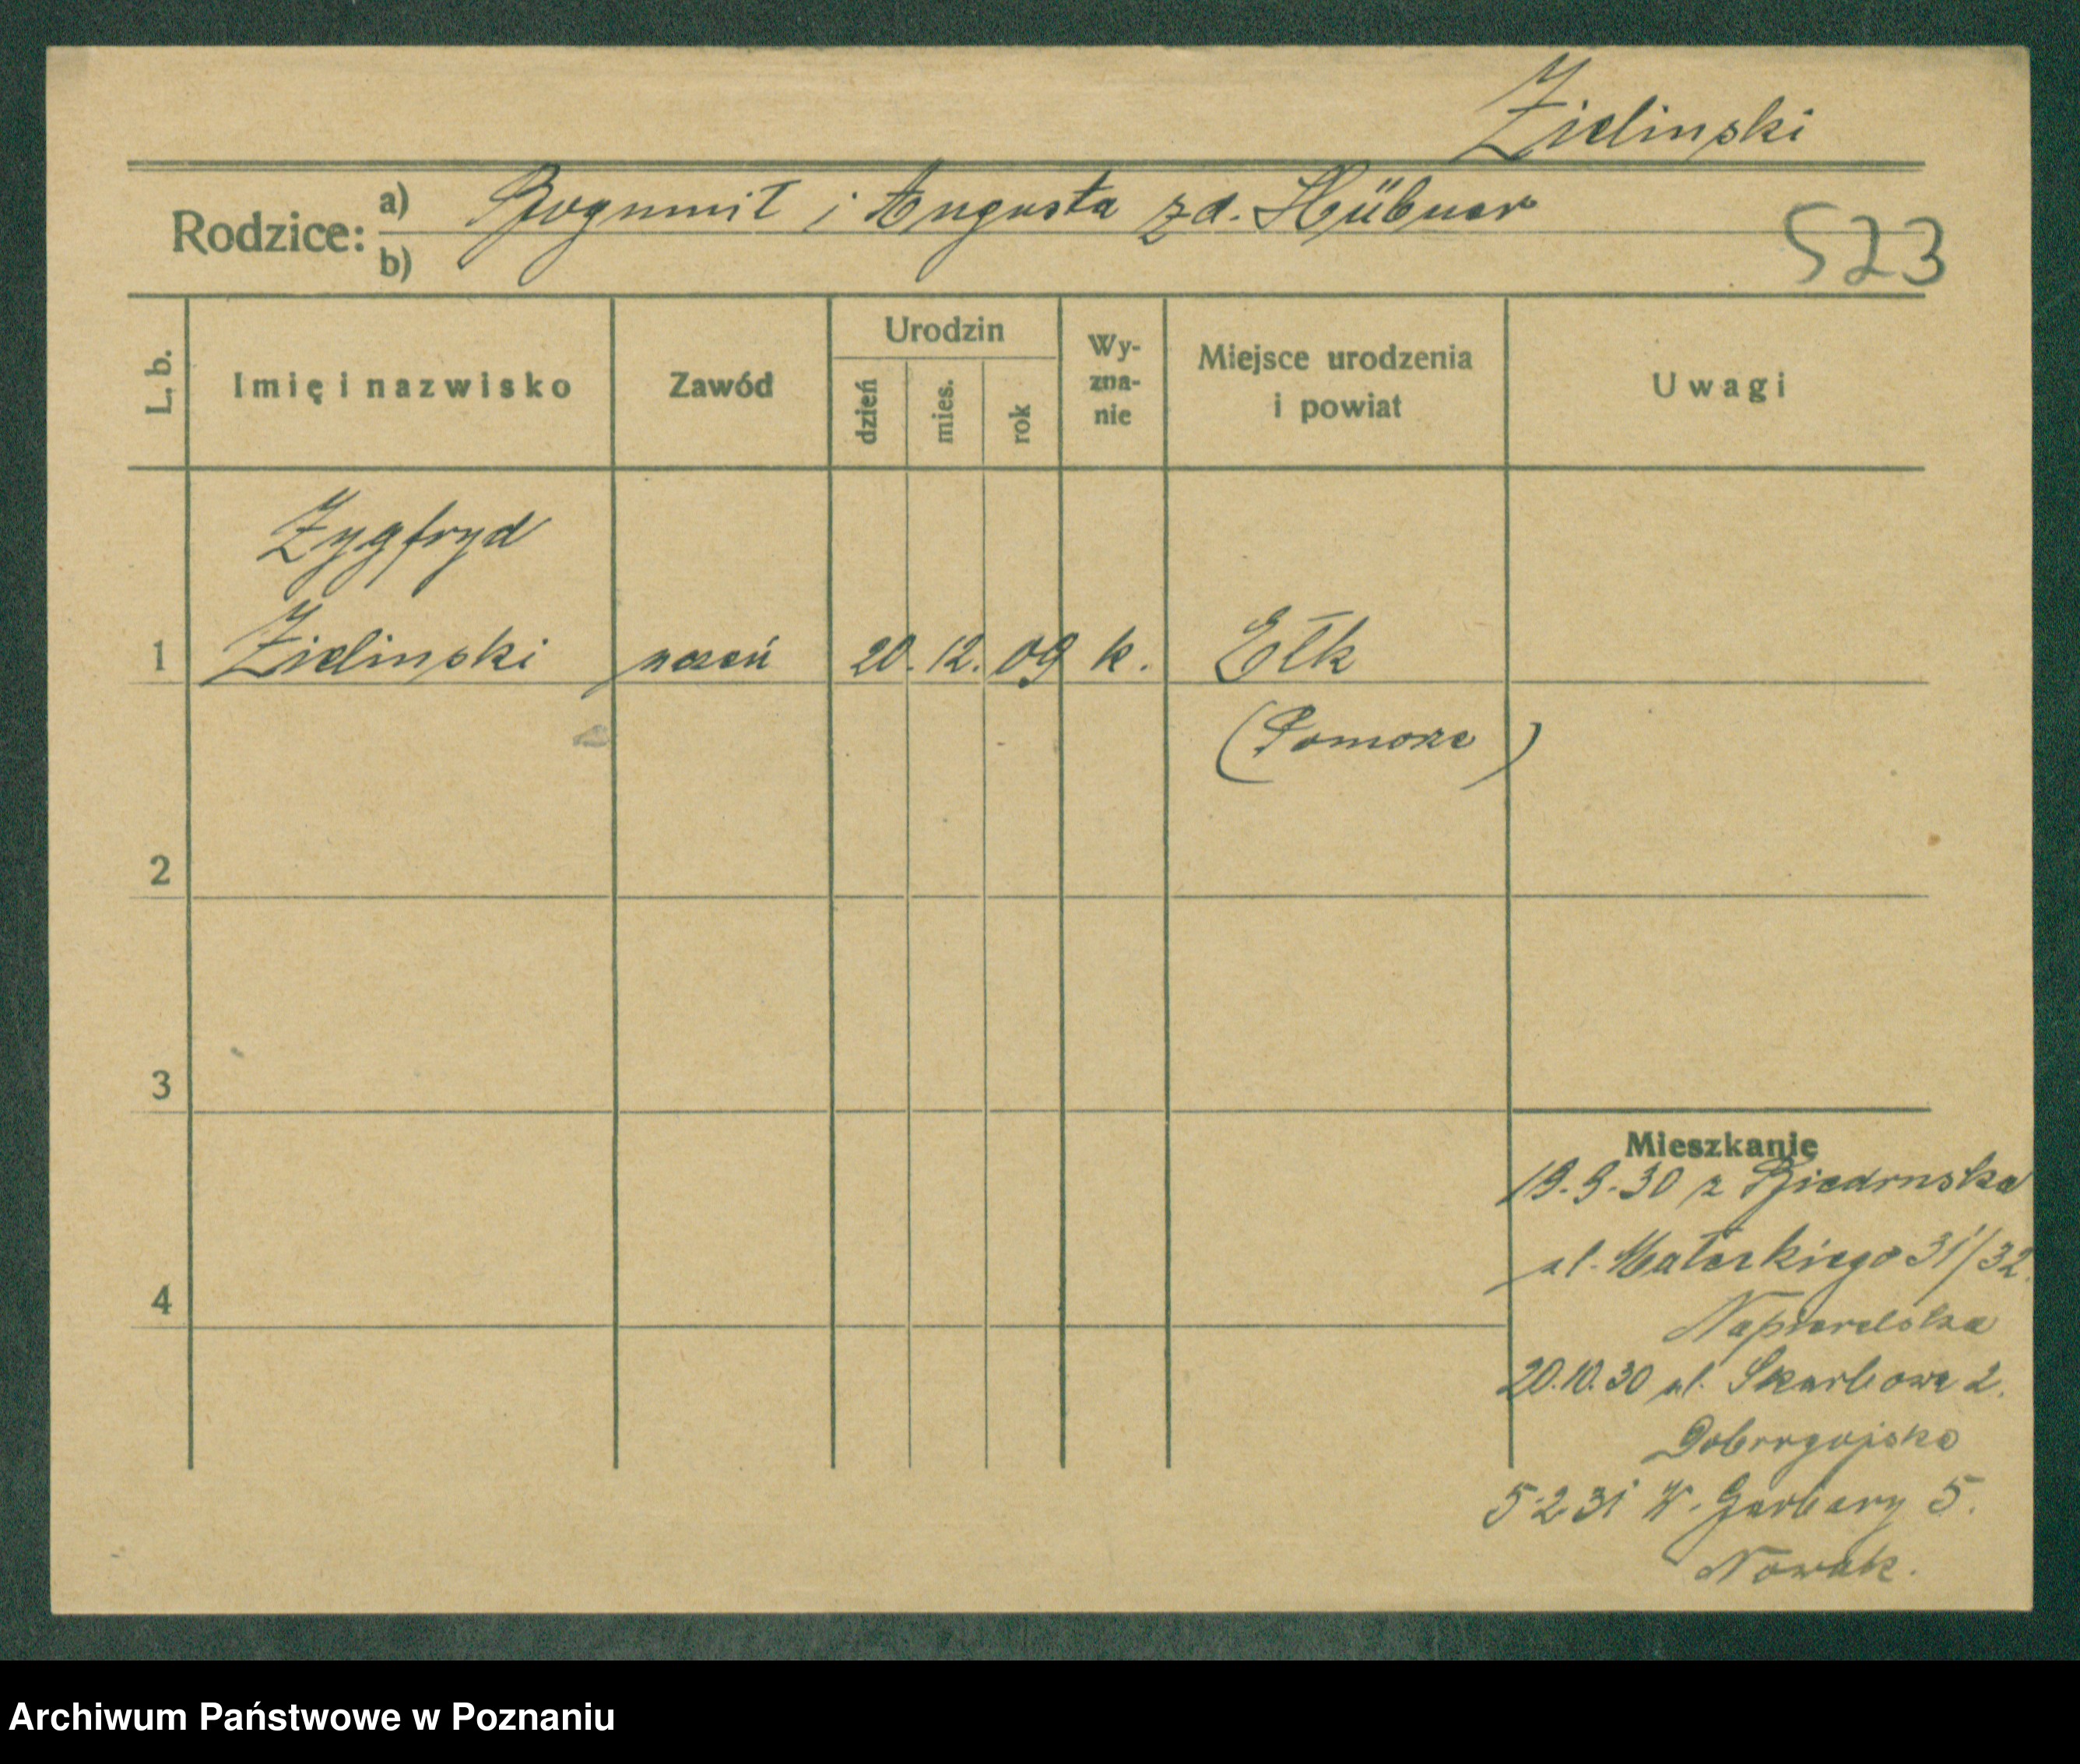 Zielinski
Rodzice: a) Bogumił i Augusta zd. Hübner
b)
523
L. b.
Imię i nazwisko
Zawód
Urodzin
dzień
mies.
rok
Wy-
zna-
nie
Miejsce urodzenia
i powiat
Uwagi
Zygfryd
1 Zielinski uczeń 20. 12. 09 k. Ełk
(Pomorze)
2
3
4
Mieszkanie
19.9.30 z Biedruska
ul. Małeckiego 31/32.
Napieralska
20.10.30 ul. Skarbowa 2.
Dobrogojska
5.2.31 W. Garbary 5.
Nowak.
Archiwum Państwowe w Poznaniu